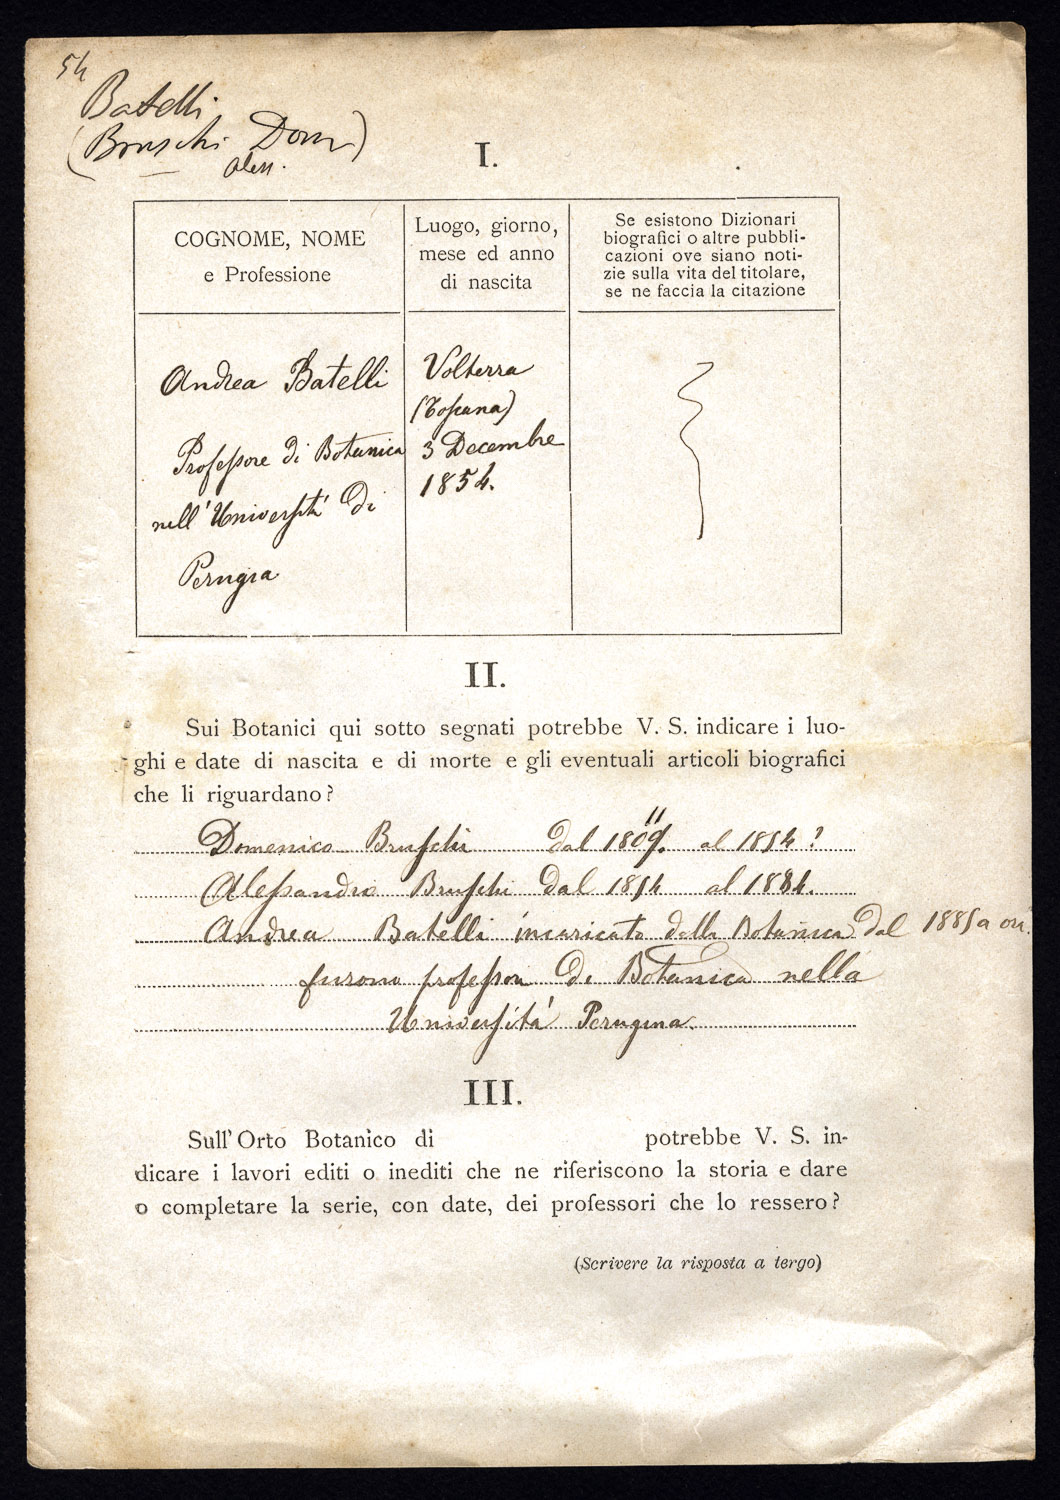 54
Batelli
(Bruschi Dom)
Aless.
I.
COGNOME, NOME
e Professione
Luogo, giorno,
mese ed anno
di nascita
Se esistono Dizionari
biografici o altre pubbli-
cazioni ove siano noti-
zie sulla vita del titolare,
se ne faccia la citazione
Andrea Batelli
Professore di Botanica
nell'Università di
Perugia
Volterra
(Toscana)
3 Decembre
1854.
II.
Sui Botanici qui sotto segnati potrebbe V. S. indicare i luo-
ghi e date di nascita e di morte e gli eventuali articoli biografici
che li riguardano?
Domenico Bruschi dal al 1854?
Alessandro Bruschi dal 1854 al 1884.
Andrea Batelli incaricato della Botanica dal 1885 a
furono professori di Botanica nella
Università Perugina.
III.
Sull'Orto Botanico di potrebbe V. S. in-
dicare i lavori editi o inediti che ne riferiscono la storia e dare
o completare la serie, con date, dei professori che lo ressero?
(Scrivere la risposta a tergo)